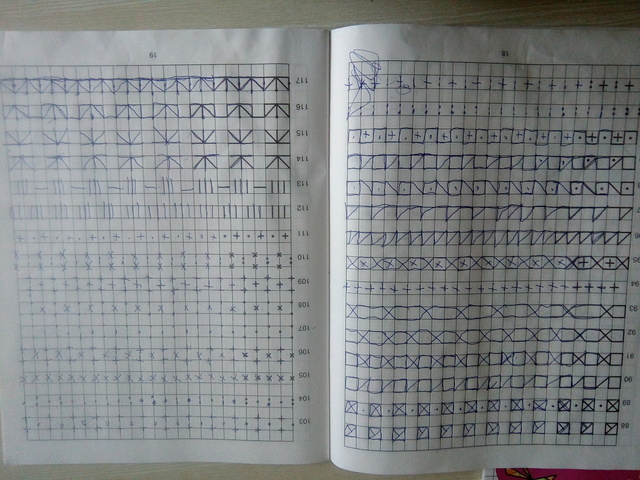 88
89
90
91
92
93
94
95
18
103
104
105
106
107
108
109
110
111
112
113
114
115
116
117
19